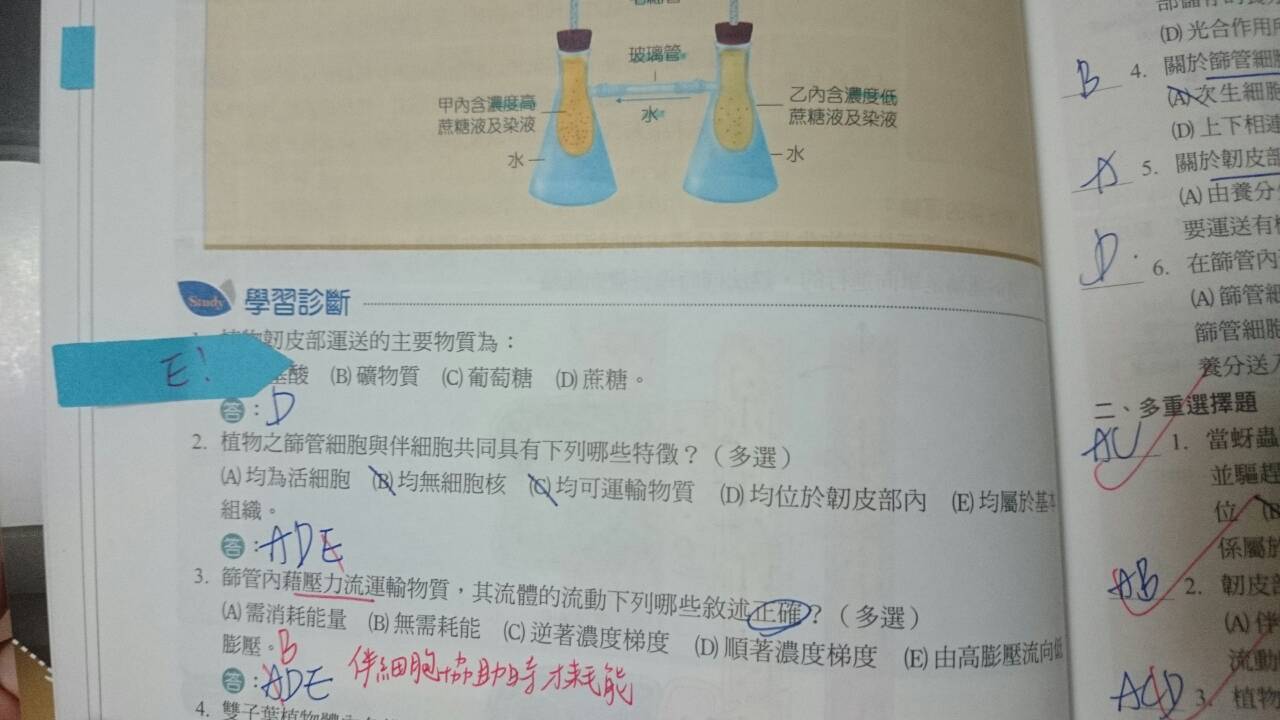 玻璃管
水
甲內含濃度高
蔗糖液及染液
乙內含濃度低
蔗糖液及染液
水
水
Study 學習診斷
韌皮部運送的主要物質為：
E!
酸 (B) 礦物質 (C) 葡萄糖 (D) 蔗糖。
答：D
2. 植物之篩管細胞與伴細胞共同具有下列哪些特徵？（多選）
(A) 均為活細胞 (B) 均無細胞核 (C) 均可運輸物質 (D) 均位於韌皮部內 (E) 均屬於基本
組織。
答：ADE
3. 篩管內藉壓力流運輸物質，其流體的流動下列哪些敘述正確？（多選）
(A) 需消耗能量 (B) 無需耗能 (C) 逆著濃度梯度 (D) 順著濃度梯度 (E) 由高膨壓流向低
膨壓。
B
答：ADE
伴細胞協助時才耗能
4. 雙子葉植物
(D) 光合作用
B 4. 關於篩管細胞
(A) 次生細胞
(D) 上下相連
A 5. 關於韌皮部
(A) 由養分
要運送有
D 6. 在篩管內
(A) 篩管細
篩管細胞
養分送入
二、多重選擇題
AC 1. 當蚜蟲
並驅趕
位
係屬於
AB 2. 韌皮部
(A) 伴
流動
ACD 3. 植物